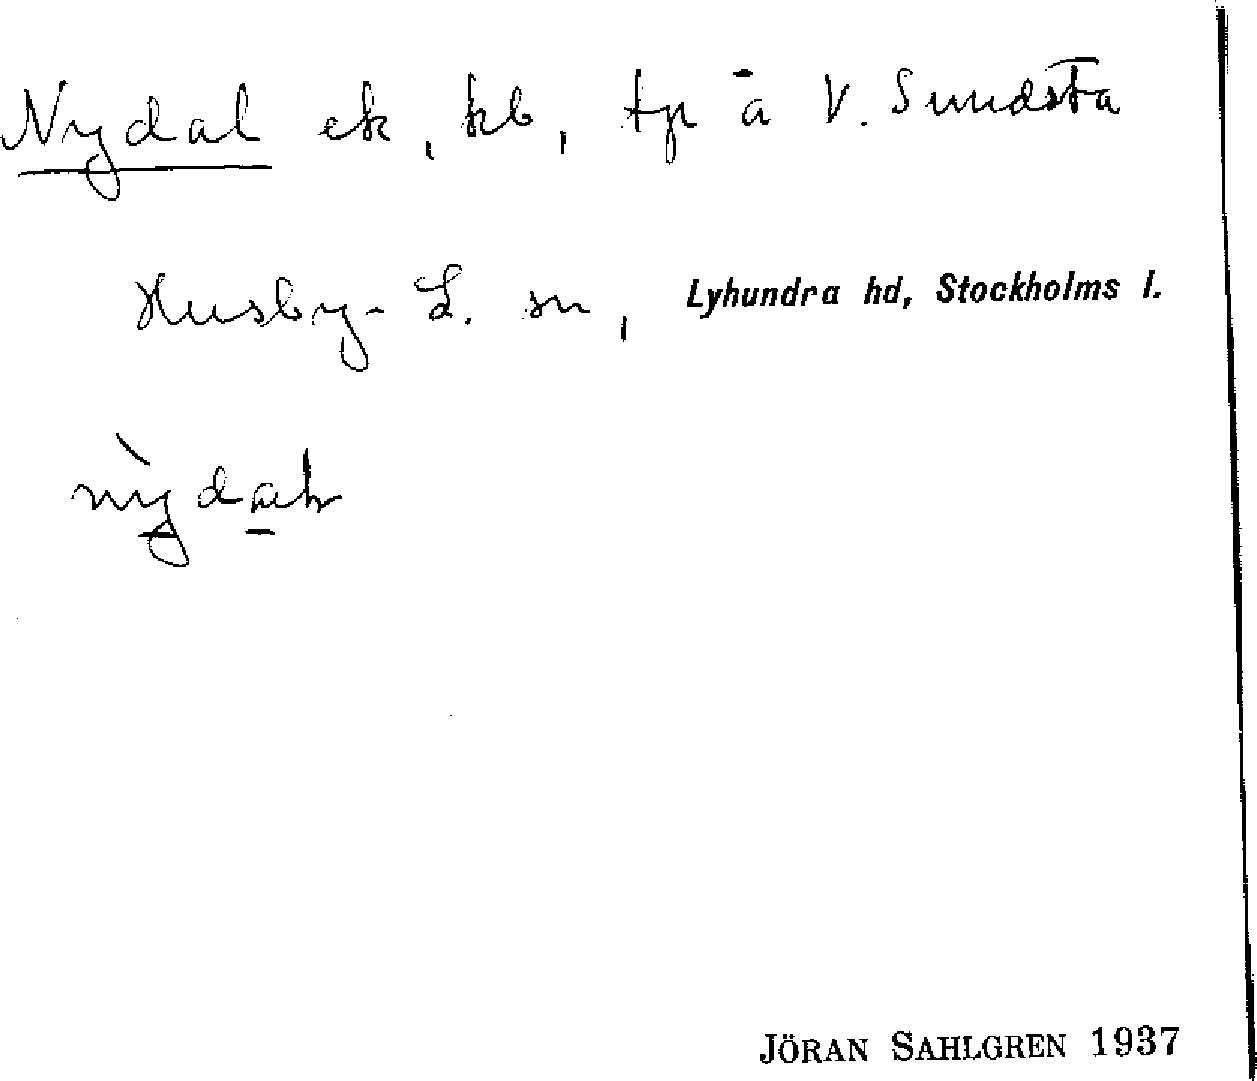 Nydal ek, kb, tp å V. Sundsta
Husby-L. sn, Lyhundra hd, Stockholms l.
JÖRAN SAHLGREN 1937